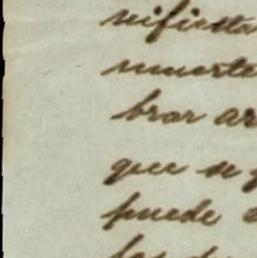 nifiesta
muerte
brar ar
que se
puede